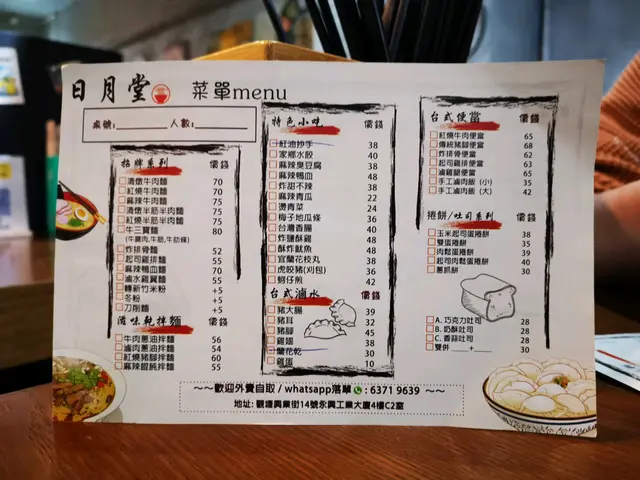 日月堂 菜單menu
桌號:________ 人數:________
招牌系列 價錢
清燉牛肉麵 70
紅燒牛肉麵 70
麻辣牛肉麵 70
清燉半筋半肉麵 75
紅燒半筋半肉麵 75
牛三寶麵 80
(牛腱肉,牛筋,牛肋條)
炸排骨麵 52
起司雞排麵 55
麻辣鴨血麵 70
滷水雞翼麵 55
轉新竹米粉 +5
冬粉 +5
刀削麵 +5
滋味乾拌麵 價錢
牛肉蔥油拌麵 56
滷肉蔥油拌麵 54
紅燒豬腳拌麵 60
麻辣餛飩拌麵 55
特色小味 價錢
紅油抄手 38
家鄉水餃 40
麻辣臭豆腐 38
麻辣鴨血 48
炸甜不辣 38
麻辣青瓜 22
燙青菜 24
梅子地瓜條 36
台灣香腸 40
炸鹽酥雞 48
酥炸魷魚 48
宜蘭花枝丸 38
虎咬豬(刈包) 36
蚵仔煎 42
台式滷水 價錢
豬大腸 39
豬耳 32
豬腳 45
雞翅 38
蘭花乾 30
雞蛋 10
台式便當 價錢
紅燒牛肉便當 65
傳統豬腳便當 68
炸排骨便當 62
起司雞排便當 63
滷雞腿便當 65
手工滷肉飯 (小) 35
手工滷肉飯 (大) 42
捲餅/吐司系列 價錢
玉米起司蛋捲餅 38
雙蛋捲餅 35
肉鬆蛋捲餅 39
起司肉鬆蛋捲餅 40
蔥抓餅 30
A. 巧克力吐司 28
B. 奶酥吐司 28
C. 香蒜吐司 28
雙併____+____ 30
~~歡迎外賣自取 / whatsapp落單 : 6371 9639 ~~
地址: 觀塘興業街14號永興工業大廈4樓C2室